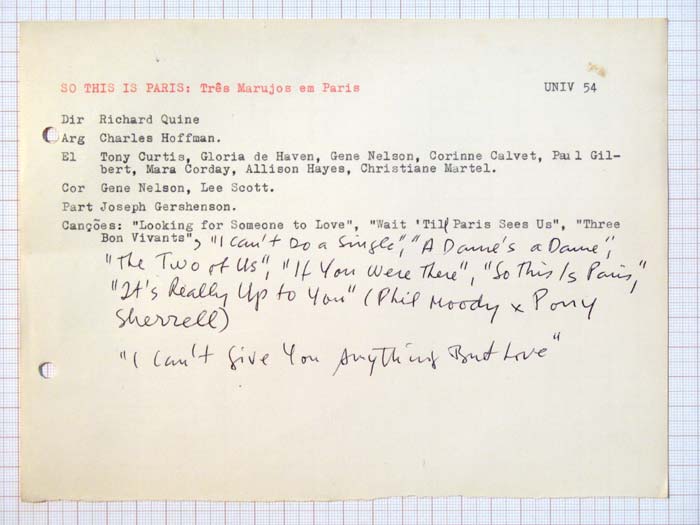 SO THIS IS PARIS: Três Marujos em Paris UNIV 54
Dir Richard Quine
Arg Charles Hoffman.
El Tony Curtis, Gloria de Haven, Gene Nelson, Corinne Calvet, Paul Gil-
bert, Mara Corday, Allison Hayes, Christiane Martel.
Cor Gene Nelson, Lee Scott.
Part Joseph Gershenson.
Canções: "Looking for Someone to Love", "Wait 'Till Paris Sees Us", "Three
Bon Vivants", "I can't Do a Single", "A Dame's a Dame",
"The Two of Us", "If You Were There", "So This Is Paris",
"It's Really Up to You" (Phil Moody x Pony
Sherrell)
"I Can't Give You Anything But Love"